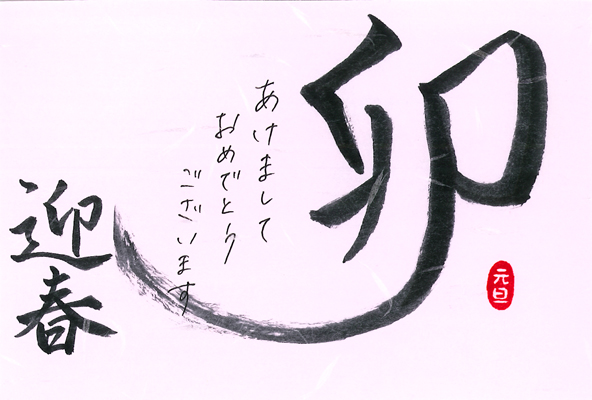 卯
あけまして
おめでとう
ございます
迎春
元旦